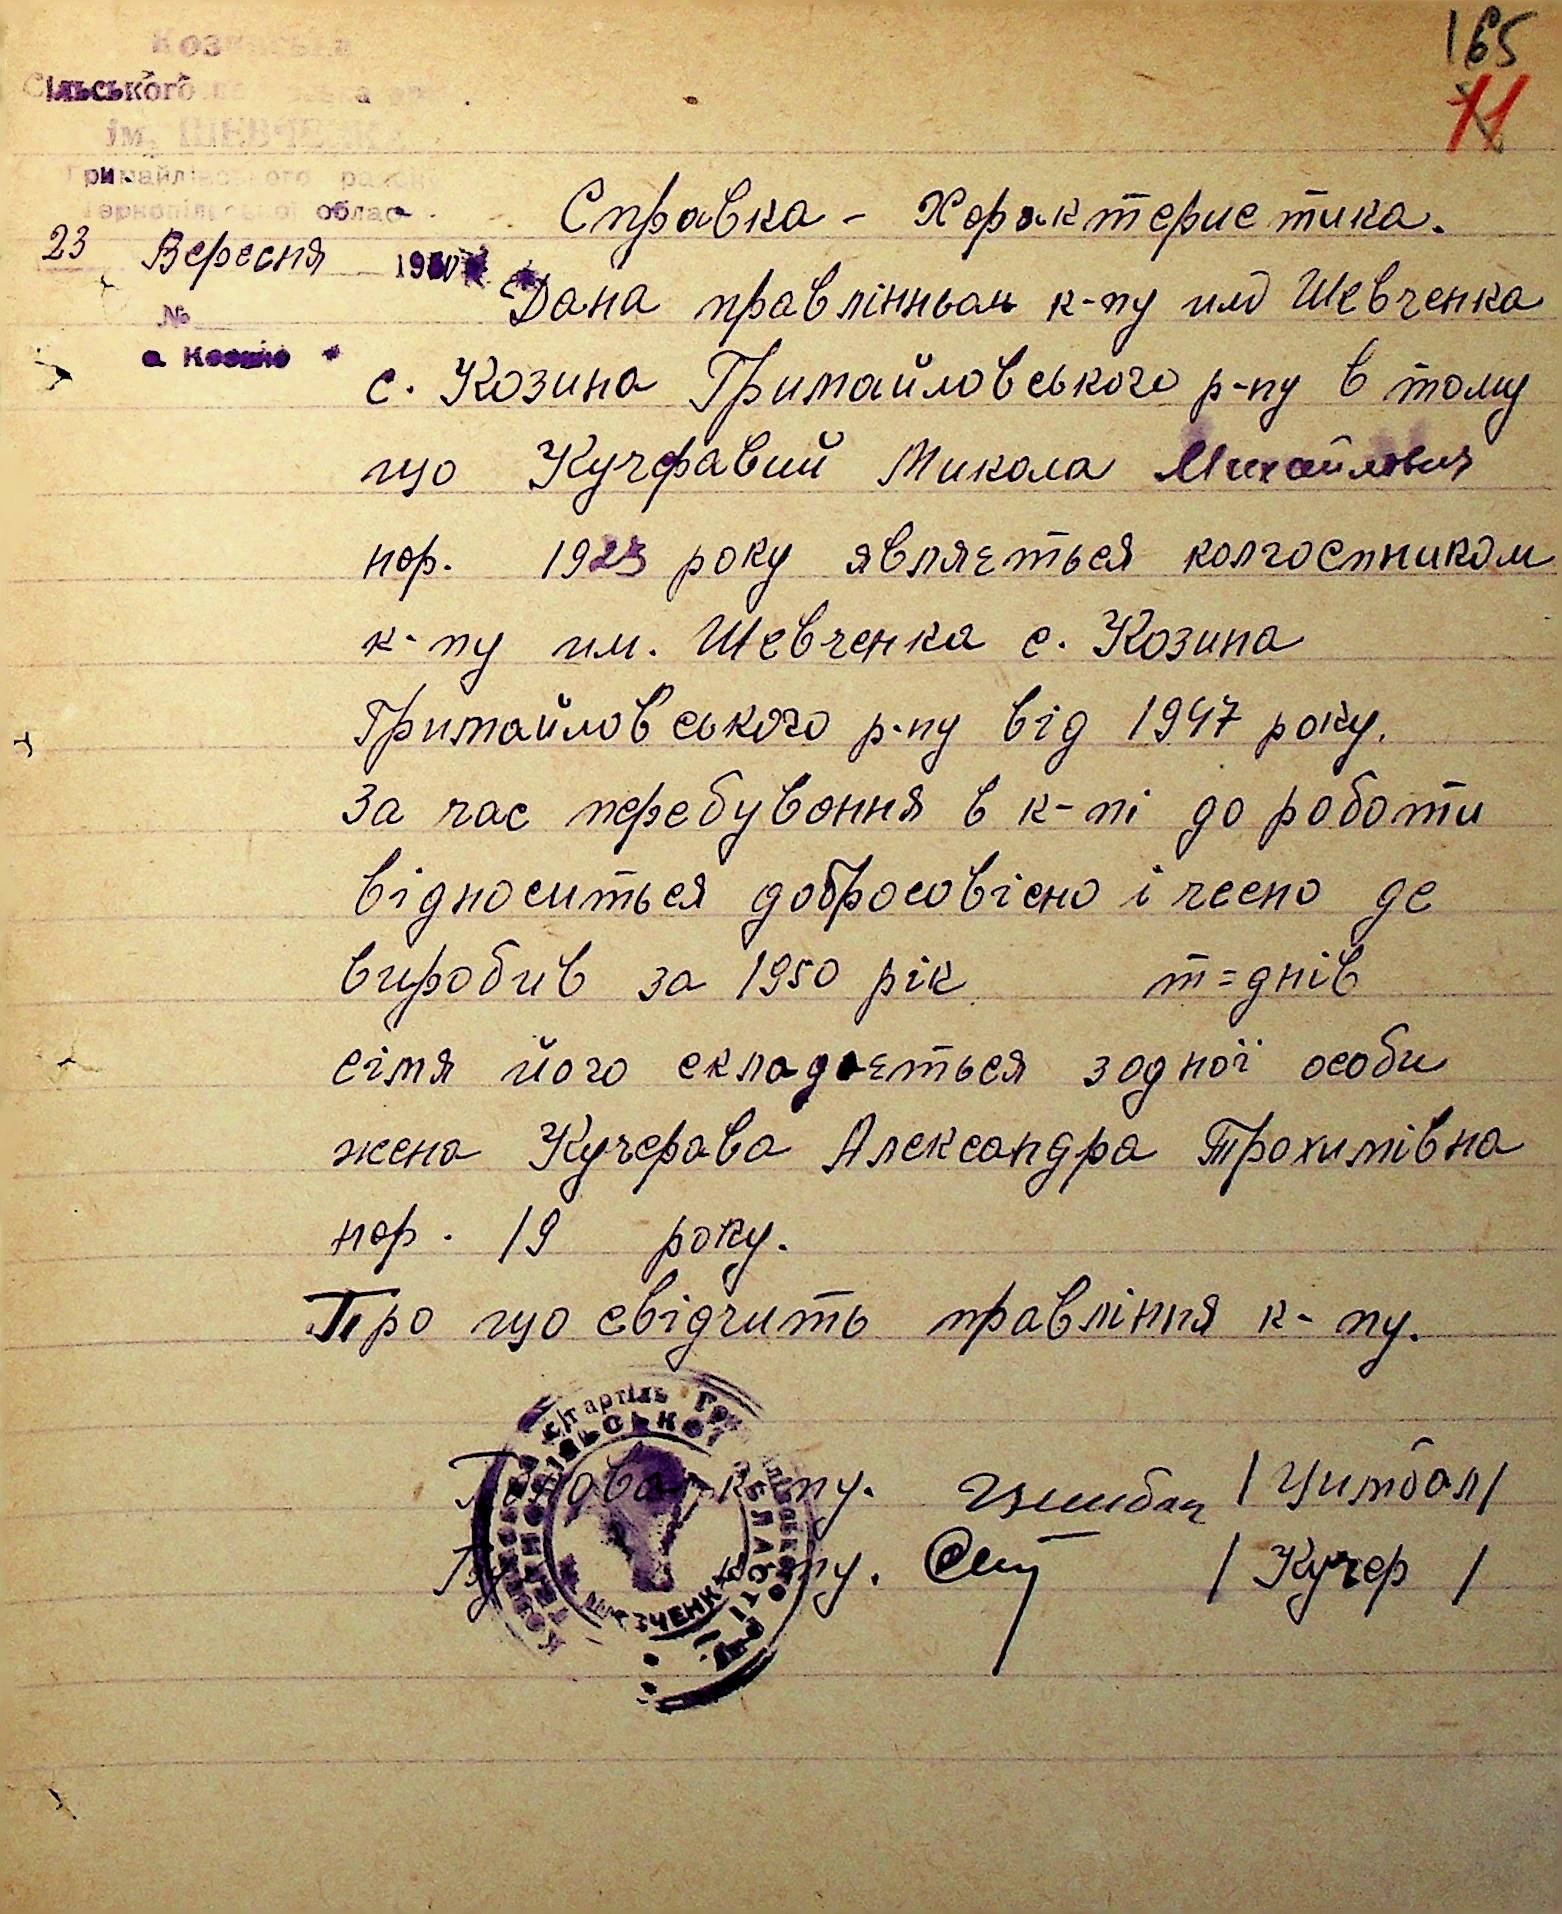 165
11
Сільського
ім. ШЕВЧЕНКА
Гримайлівського району
Тернопільської облас
23 Вересня 1950
№
с. Козина
Справка - Характеристика.
Дана правлінньам к-пу им Шевченка
с. Козина Гримайловського р-ну в тому
що Кучеравий Микола Михайлович
нор. 1923 року являеться колгоспником
к-пу им. Шевченка с. Козина
Гримайловського р-ну від 1947 року.
За час перебування в к-пі до роботи
відноситься добросовісно і чесно де
виробив за 1950 рік т=днів
сімя його складаеться зодної особи
жена Кучерава Александра Трохимівна
нор. 19 року.
Про що свідчить правління к-пу.
Голова к-пу. Цимбал / Цимбал /
к-пу. / Кучер /
с/г артіль
ШЕВЧЕНКА
ОБЛАСТІ